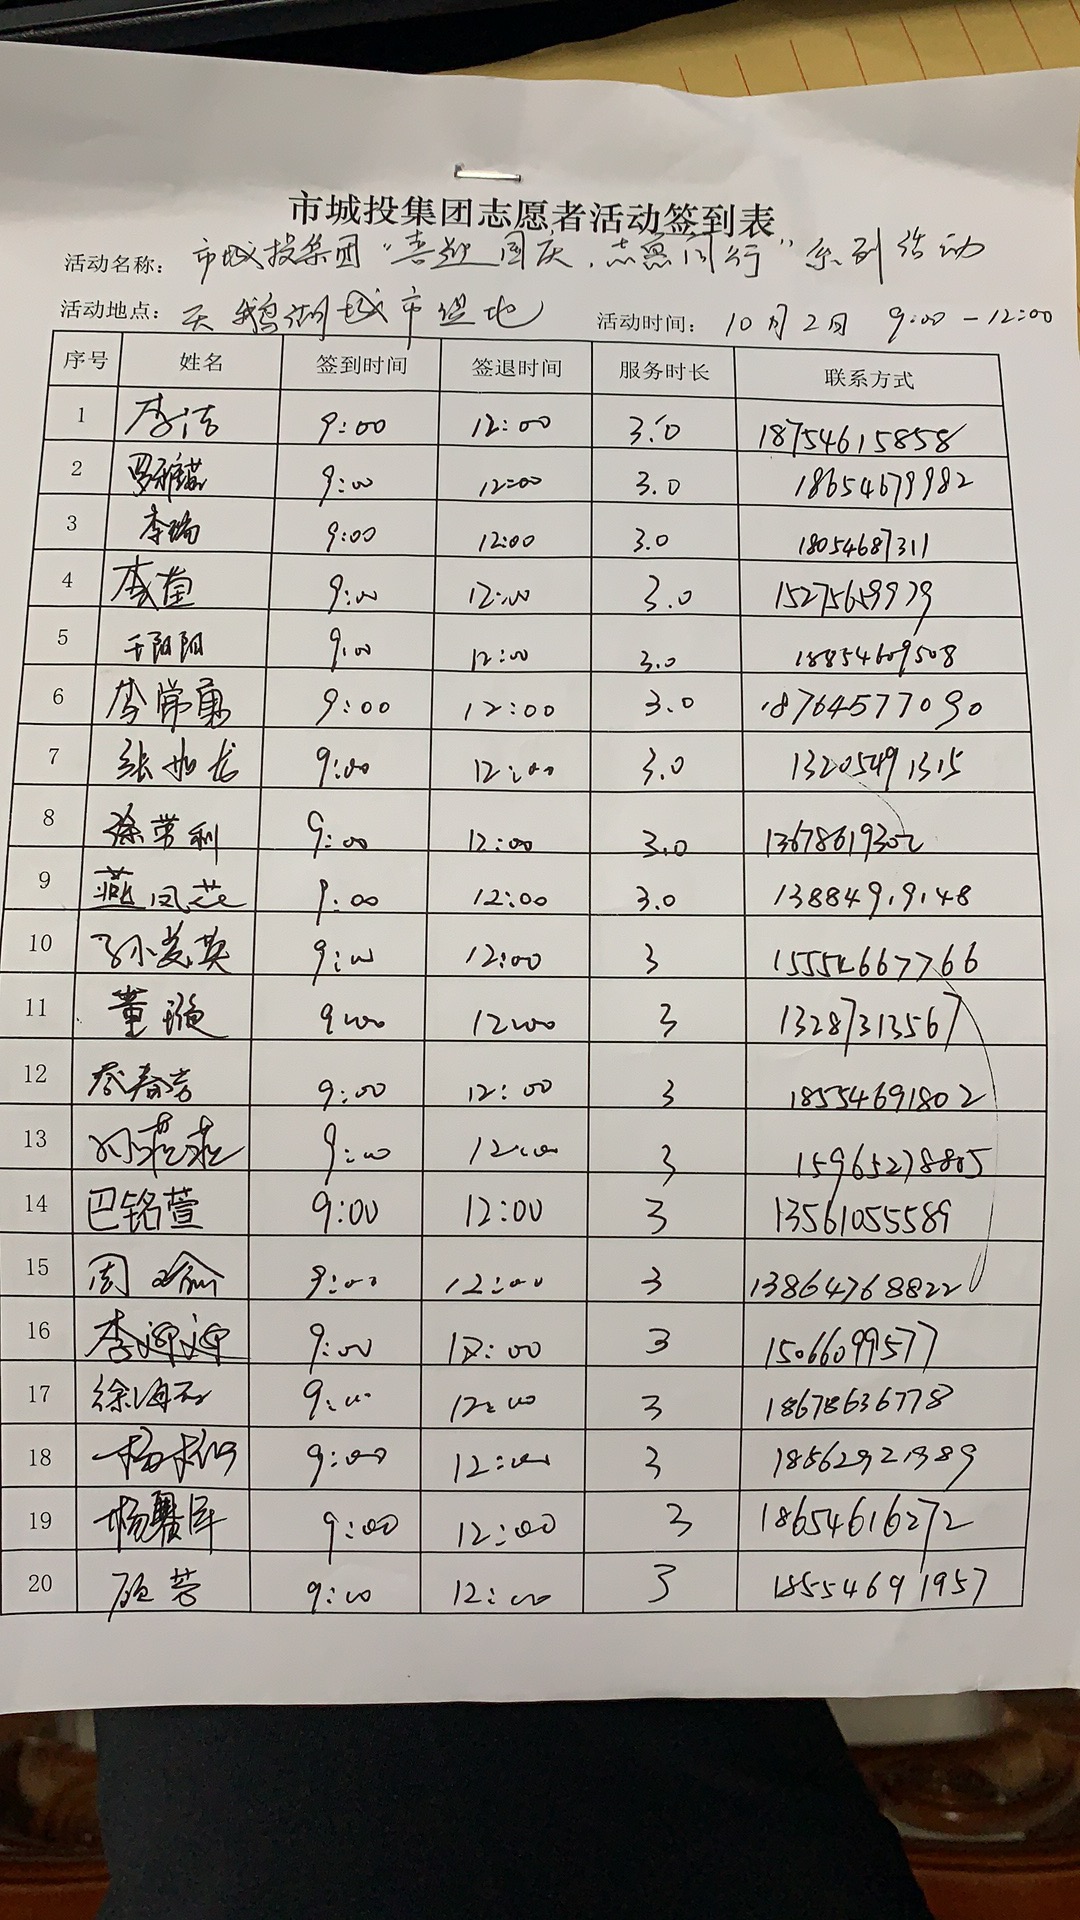 市城投集团志愿者活动签到表
活动名称: 市城投集团“喜迎国庆.志愿同行”系列活动
活动地点: 天鹅湖城市湿地 活动时间: 10月2日 9:00-12:00
序号 姓名 签到时间 签退时间 服务时长 联系方式
1 李洁 9:00 12:00 3.0 18754615858
2 9:00 12:00 3.0 18654679982
3 李瑞 9:00 12:00 3.0 18054687311
4 9:00 12:00 3.0 15275659979
5 王阳阳 9:00 12:00 3.0 18854609508
6 李常勇 9:00 12:00 3.0 18764577090
7 张如龙 9:00 12:00 3.0 13205491315
8 徐芳利 9:00 12:00 3.0 13678619302
9 燕凤芝 9:00 12:00 3.0 13884919148
10 孙美英 9:00 12:00 3 15554667766
11 董璇 9:00 12:00 3 13287313567
12 9:00 12:00 3 18554691802
13 9:00 12:00 3 15965278805
14 巴铭萱 9:00 12:00 3 13561055589
15 周瑜 9:00 12:00 3 13864768822
16 9:00 12:00 3 15066099577
17 9:00 12:00 3 18678636778
18 9:00 12:00 3
19 9:00 12:00 3 18654616272
20 9:00 12:00 3 18554691957